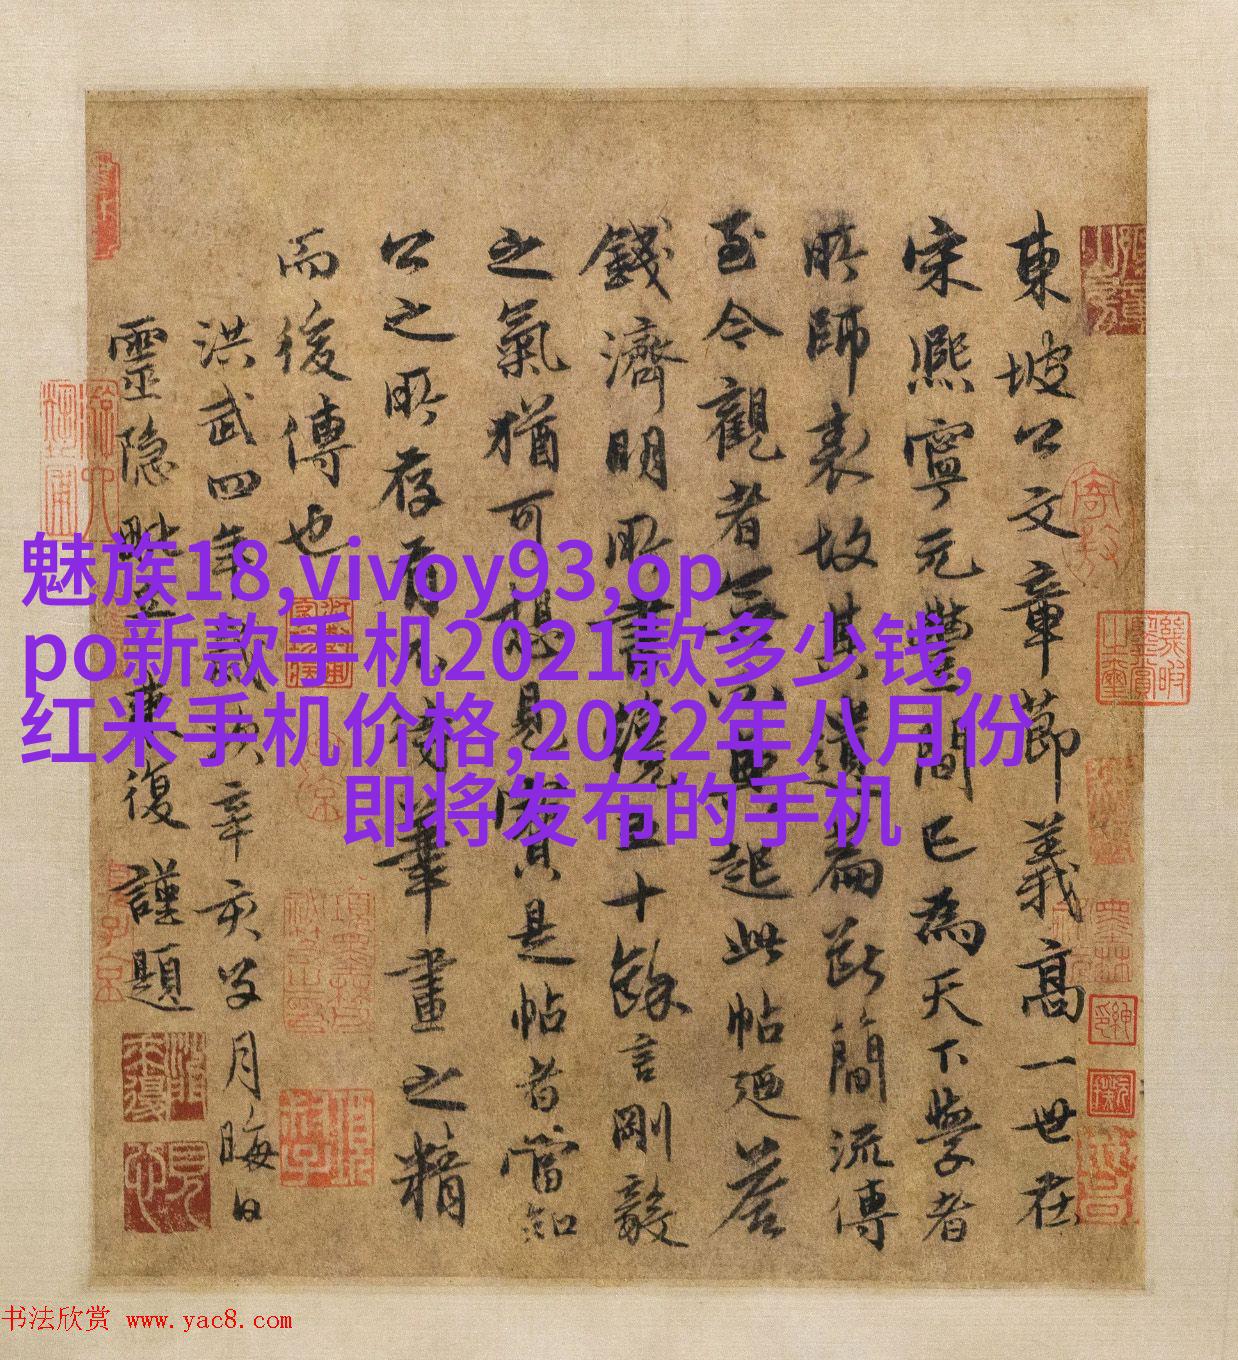 東坡公文章節義高一世在
宋熙寧元豐間已為天下學者
所師表故其遺篇斷簡流傳
至今觀者起此帖廼答
錢濟明所書十餘言剛毅
之氣猶可想見寶是帖者當知
公之所存有不筆畫之精
而後傳也
洪武四年歲次辛亥月晦日
靈隱來復謹題
魅族18,vivoy93,op
po新款手机2021款多少钱,
红米手机价格,2022年八月份
即将发布的手机
书法欣赏 www.yac8.com